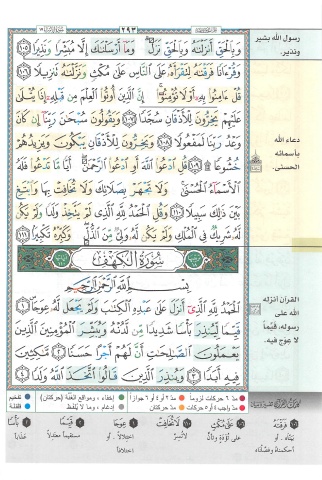 ٢٩٣
وَبِالْحَقِّ أَنزَلْنَاهُ وَبِالْحَقِّ نَزَلَ ۗ وَمَا أَرْسَلْنَاكَ إِلَّا مُبَشِّرًا وَنَذِيرًا ﴿١٠٥﴾
وَقُرْآنًا فَرَقْنَاهُ لِتَقْرَأَهُ عَلَى النَّاسِ عَلَىٰ مُكْثٍ وَنَزَّلْنَاهُ تَنزِيلًا ﴿١٠٦﴾
قُلْ آمِنُوا بِهِ أَوْ لَا تُؤْمِنُوا ۚ إِنَّ الَّذِينَ أُوتُوا الْعِلْمَ مِن قَبْلِهِ إِذَا يُتْلَىٰ
عَلَيْهِمْ يَخِرُّونَ لِلْأَذْقَانِ سُجَّدًا ﴿١٠٧﴾ وَيَقُولُونَ سُبْحَانَ رَبِّنَا إِن كَانَ
وَعْدُ رَبِّنَا لَمَفْعُولًا ﴿١٠٨﴾ وَيَخِرُّونَ لِلْأَذْقَانِ يَبْكُونَ وَيَزِيدُهُمْ
خُشُوعًا ۩ ﴿١٠٩﴾ قُلِ ادْعُوا اللَّهَ أَوِ ادْعُوا الرَّحْمَٰنَ ۖ أَيًّا مَّا تَدْعُوا فَلَهُ
الْأَسْمَاءُ الْحُسْنَىٰ ۚ وَلَا تَجْهَرْ بِصَلَاتِكَ وَلَا تُخَافِتْ بِهَا وَابْتَغِ
بَيْنَ ذَٰلِكَ سَبِيلًا ﴿١١٠﴾ وَقُلِ الْحَمْدُ لِلَّهِ الَّذِي لَمْ يَتَّخِذْ وَلَدًا وَلَمْ يَكُن
لَّهُ شَرِيكٌ فِي الْمُلْكِ وَلَمْ يَكُن لَّهُ وَلِيٌّ مِّنَ الذُّلِّ ۖ وَكَبِّرْهُ تَكْبِيرًا ﴿١١١﴾
سُورَةُ الْكَهْفِ
بِسْمِ اللَّهِ الرَّحْمَٰنِ الرَّحِيمِ
الْحَمْدُ لِلَّهِ الَّذِي أَنزَلَ عَلَىٰ عَبْدِهِ الْكِتَابَ وَلَمْ يَجْعَل لَّهُ عِوَجًا ﴿١﴾
قَيِّمًا لِّيُنذِرَ بَأْسًا شَدِيدًا مِّن لَّدُنْهُ وَيُبَشِّرَ الْمُؤْمِنِينَ الَّذِينَ
يَعْمَلُونَ الصَّالِحَاتِ أَنَّ لَهُمْ أَجْرًا حَسَنًا ﴿٢﴾ مَّاكِثِينَ
فِيهِ أَبَدًا ﴿٣﴾ وَيُنذِرَ الَّذِينَ قَالُوا اتَّخَذَ اللَّهُ وَلَدًا ﴿٤﴾
رسول الله بشير
ونذير.
دعاء الله
بأسمائه
الحسنى.
القرآن أنزله
الله على
رسوله، قيّمًا
لا عوج فيه.
مد ٦ حركات لزوماً
مد ٢ أو ٤ أو ٦ جوازاً
إخفاء، ومواقع الغنّة (حركتان)
تفخيم
مد واجب ٤ أو ٥ حركات
مد حركتان
إدغام، وما لا يُلفظ
قلقلة
فَرَقْنَاهُ
بيّنّاه، أو
أحكمناه وفصّلناه
عَلَى مُكْثٍ
على تُؤَدَةٍ وتأنٍّ
لَا تُخَافِتْ
لا تُسِرَّ
عِوَجًا
اختلالاً، أو
اختلافاً
قَيِّمًا
مستقيماً معتدلاً
بَأْسًا
عذاباً